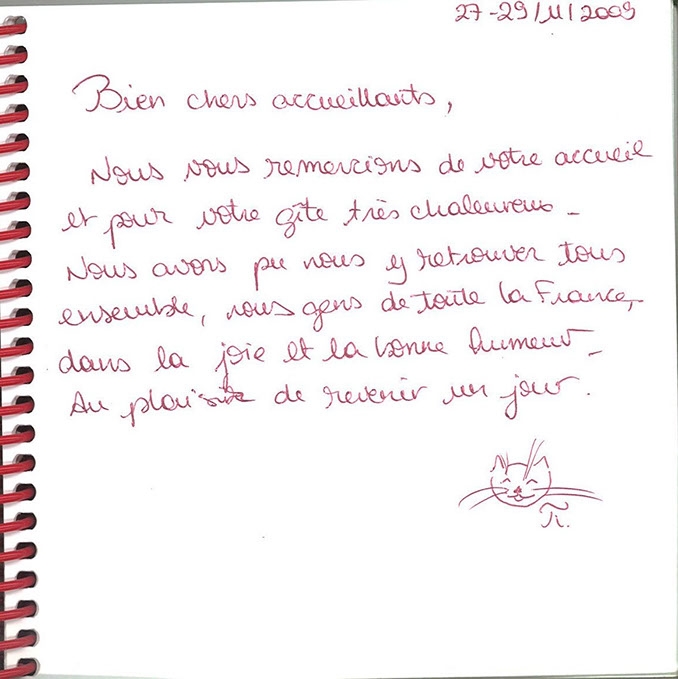 27-29/11/2009
Bien chers accueillants,
Nous vous remercions de votre accueil
et pour votre gîte très chaleureux -
Nous avons pu nous y retrouver tous
ensemble, nous gens de toute la France,
dans la joie et la bonne humeur -
Au plaisir de revenir un jour.